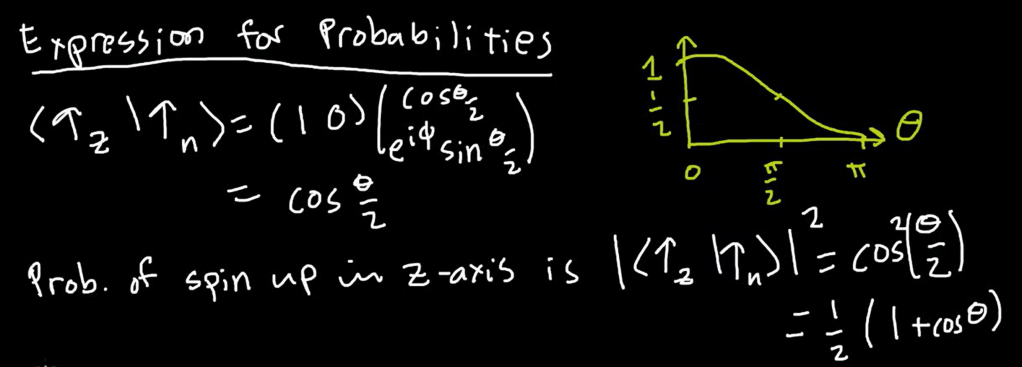 Expression for Probabilities
⟨↑z|↑n⟩ = (1 0) (cos θ/2
e^{iφ} sin θ/2)
= cos θ/2
1
1/2
0 π/2 π θ
Prob. of spin up in z-axis is |⟨↑z|↑n⟩|² = cos²(θ/2)
= 1/2 (1 + cos θ)